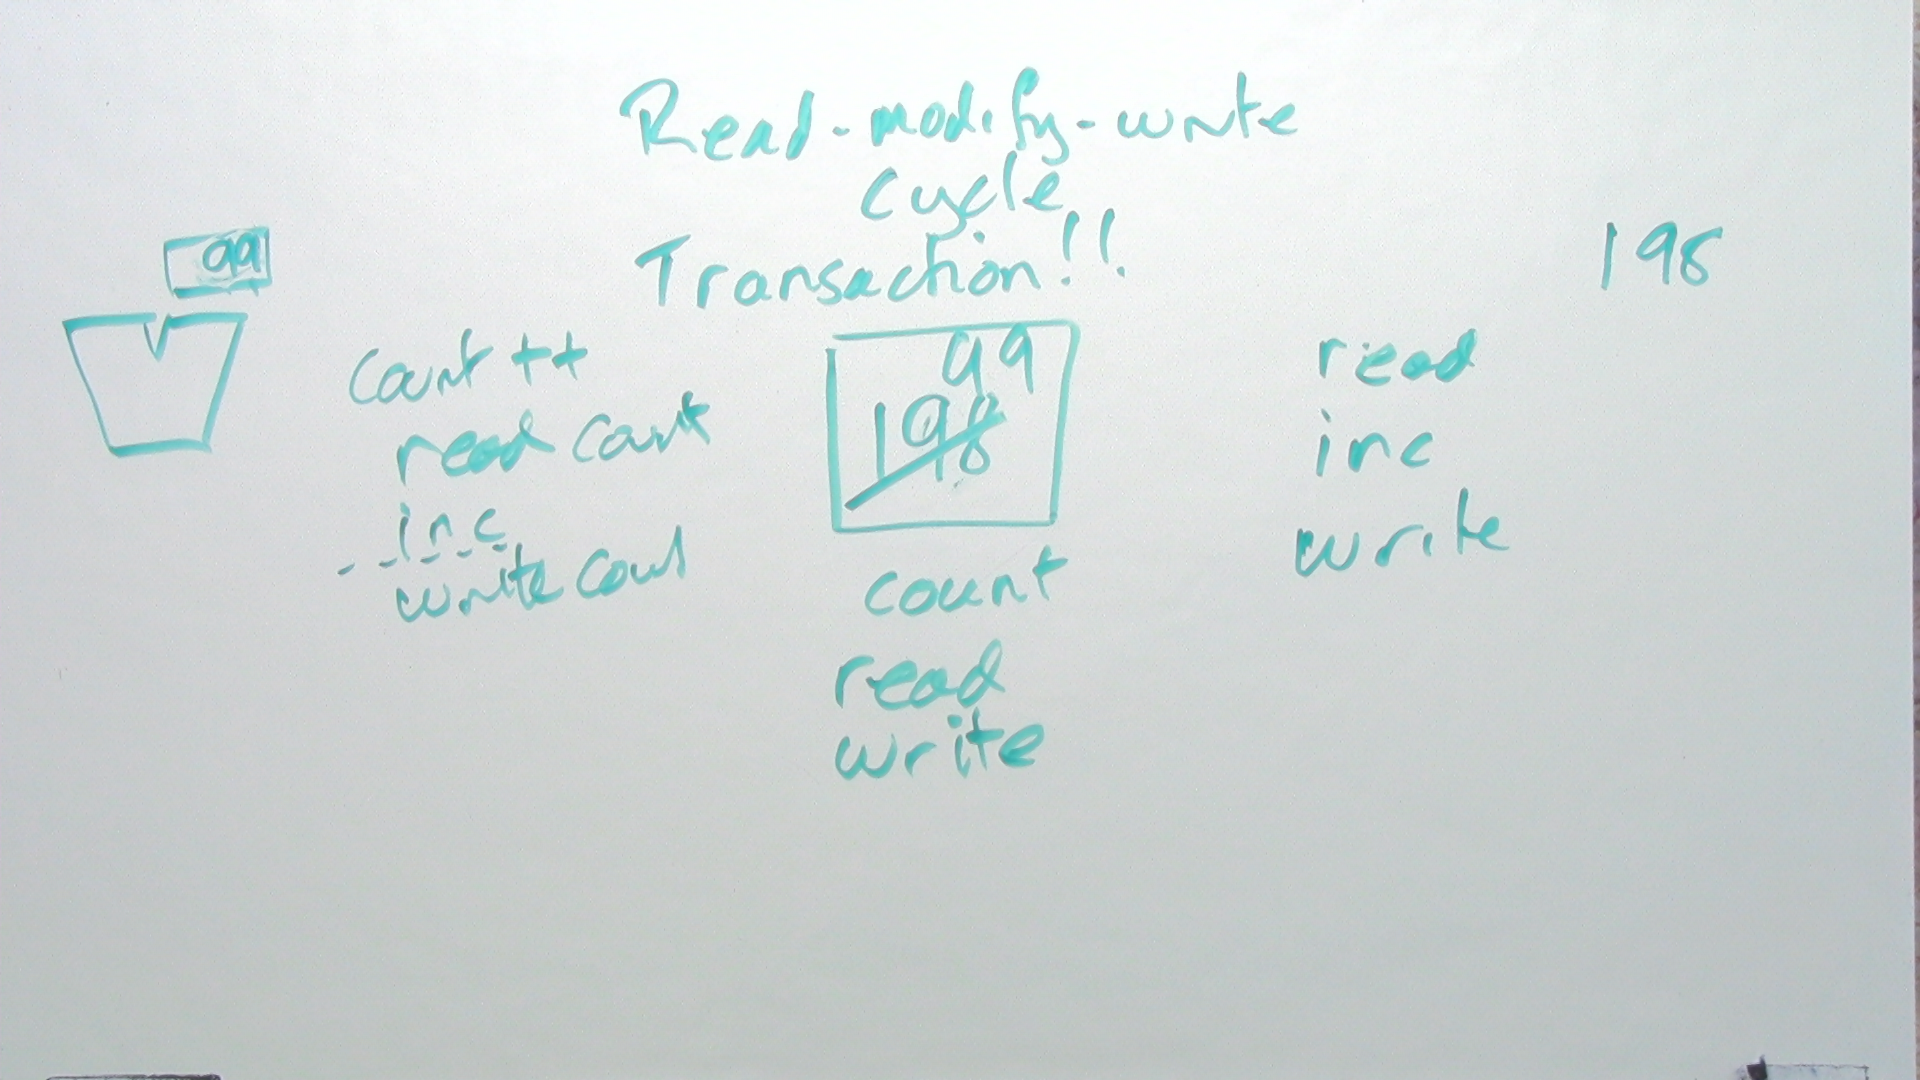 Read-modify-write
cycle
Transaction!!
99
count ++
read count
inc
write count
99
198
count
read
write
198
read
inc
write